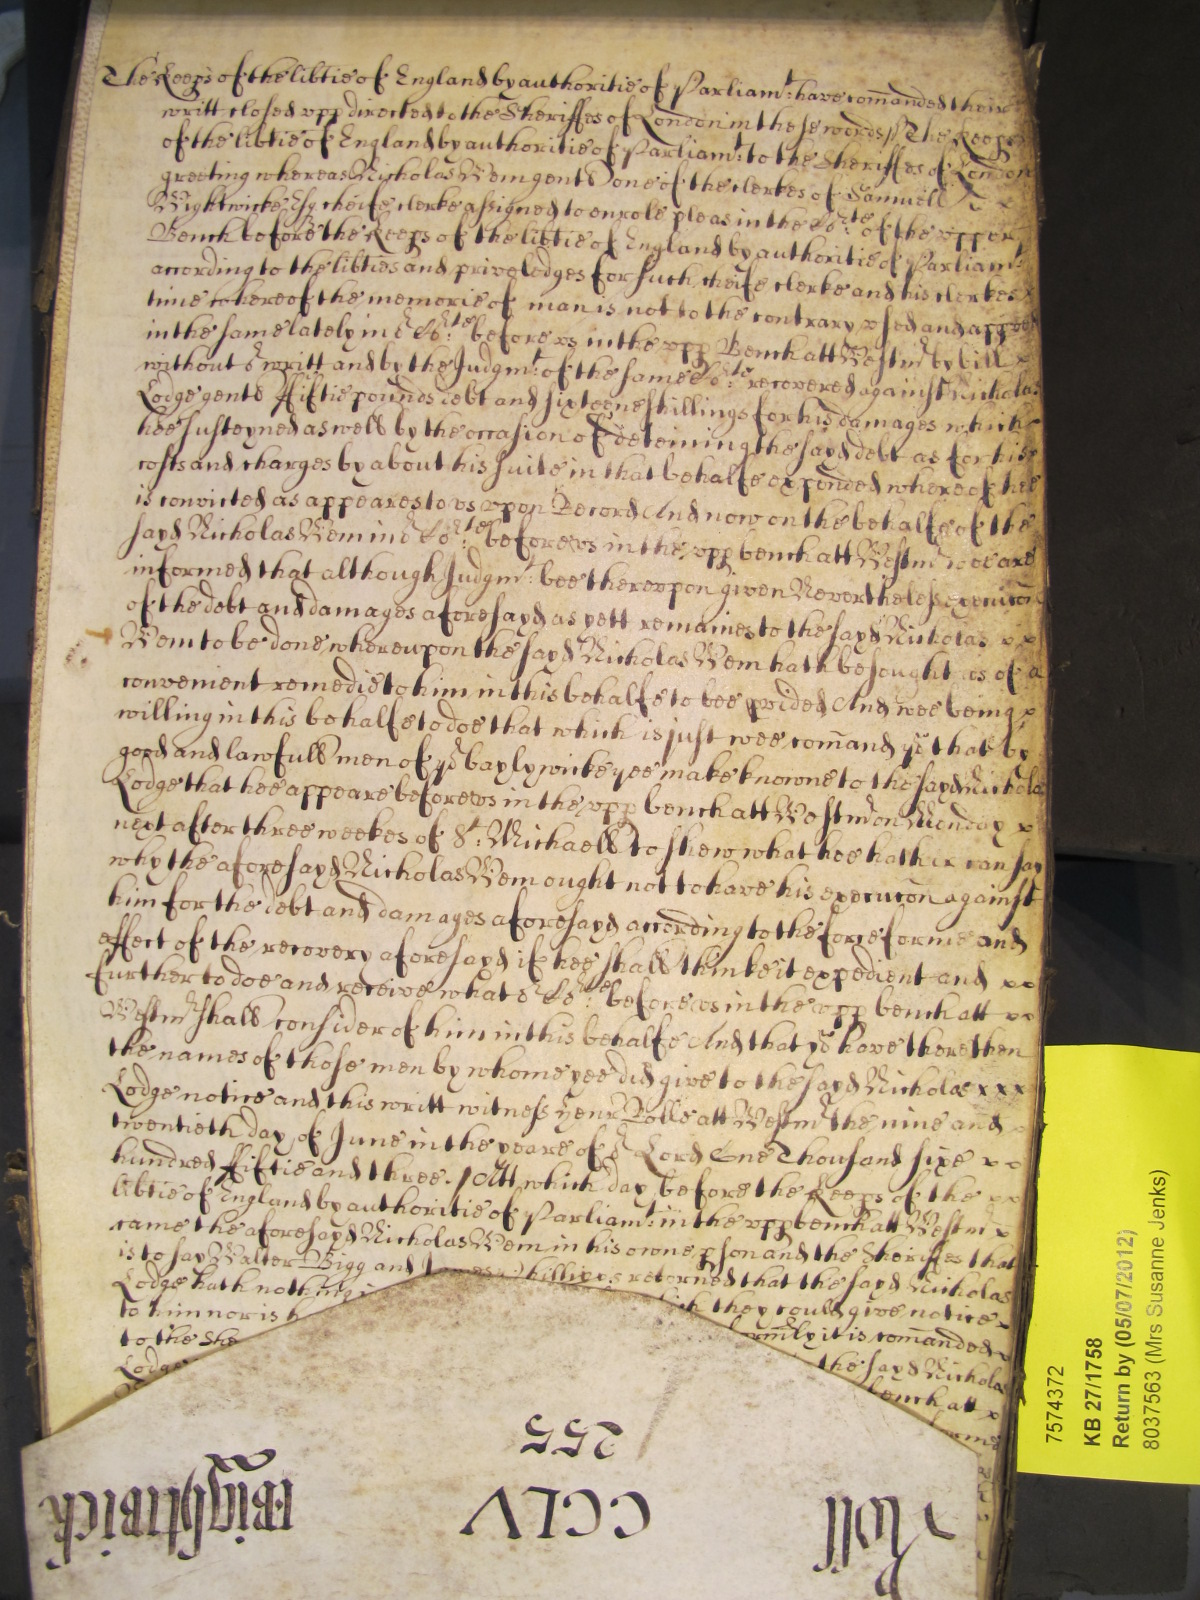 The Keeps of the libtie of England by authoritie of Parliamt: have comanded their
writt closed upp directed to the Sheriffes of London in these words The Keeps
of the libtie of England by authoritie of Parliamt: to the Sheriffes of London
greeting whereas Nicholas Wem gent one of the clerkes of Samuell
Wightwicke Esq cheife clerke assigned to enrole pleas in the Cote of the upper
Bench before the Keeps of the libtie of England by authoritie of Parliamt:
according to the libties and priveledges for such cheife clerke and his clerkes x
time whereof the memorie of man is not to the contrary used and appved
in the same lately in ye Cote before us in the upp Bench att Westmr by bill x
without ye writt and by the Judgmt: of the same Cote recovered against Nicholas
Lodge gent ffiftie pounds debt and sixteene shillings for his damages which
hee susteyned as well by the occasion of deteining the sayd debt as for his
costs and charges by about his suite in that behalfe expended whereof hee
is convicted as appeares to us upon Record And now on the behalfe of the
sayd Nicholas Wem in ye Cote before us in the upp bench att Westmr wee are
informed that although Judgmt: bee thereupon given Nevertheless execucon
of the debt and damages aforesayd as yett remaines to the sayd Nicholas x x
Wem to be done whereupon the sayd Nicholas Wem hath besought us of a
convenient remedie to him in this behalfe to bee pvided And wee being x
willing in this behalfe to doe that which is just wee comand yo that by
good and lawfull men of yo baylywicke yee make knowne to the sayd Nichola
Lodge that hee appeare before us in the upp bench att Westmr on Monday x
next after three weekes of St: Michaell to shew what hee hath or can say
why the aforesayd Nicholas Wem ought not to have his execucon against
him for the debt and damages aforesayd according to the force forme and
effect of the recovery aforesayd if hee shall thinke it expedient and x x
further to doe and receive what ye Cote before us in the upp bench att x x
Westmr shall consider of him in this behalfe And that yo have there then
the names of those men by whome yee did give to the sayd Nicholas x x x
Lodge notice and this writt witness Henr Rolle att Westmr the nine and x
twentieth day of June in the yeare of or Lord One Thousand sixe x x
hundred ffiftie and three. Att which day before the Keeps of the x x
libtie of England by authoritie of Parliamt: in the upp bench att Westmr x
came the aforesayd Nicholas Wem in his owne pson and the Sheriffes that
is to say Walter Bigg and Phillipps retorned that the sayd Nicholas
Lodge hath nothing they could give notice x
to him nor is it is comanded x
to the She the sayd Nicholas
Lodge bench att x
Roll CCLV Wightwick
255
7574372
KB 27/1758
Return by (05/07/2012)
8037563 (Mrs Susanne Jenks)